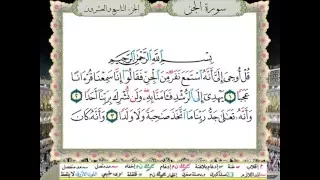 سورة الجن
الجزء التاسع والعشرون
بِسْمِ اللَّهِ الرَّحْمَٰنِ الرَّحِيمِ
قُلْ أُوحِيَ إِلَيَّ أَنَّهُ اسْتَمَعَ نَفَرٌ مِّنَ الْجِنِّ فَقَالُوا إِنَّا سَمِعْنَا قُرْآنًا
عَجَبًا ١ يَهْدِي إِلَى الرُّشْدِ فَآمَنَّا بِهِ ۖ وَلَن نُّشْرِكَ بِرَبِّنَا أَحَدًا ٢
وَأَنَّهُ تَعَالَىٰ جَدُّ رَبِّنَا مَا اتَّخَذَ صَاحِبَةً وَلَا وَلَدًا ٣ وَأَنَّهُ كَانَ